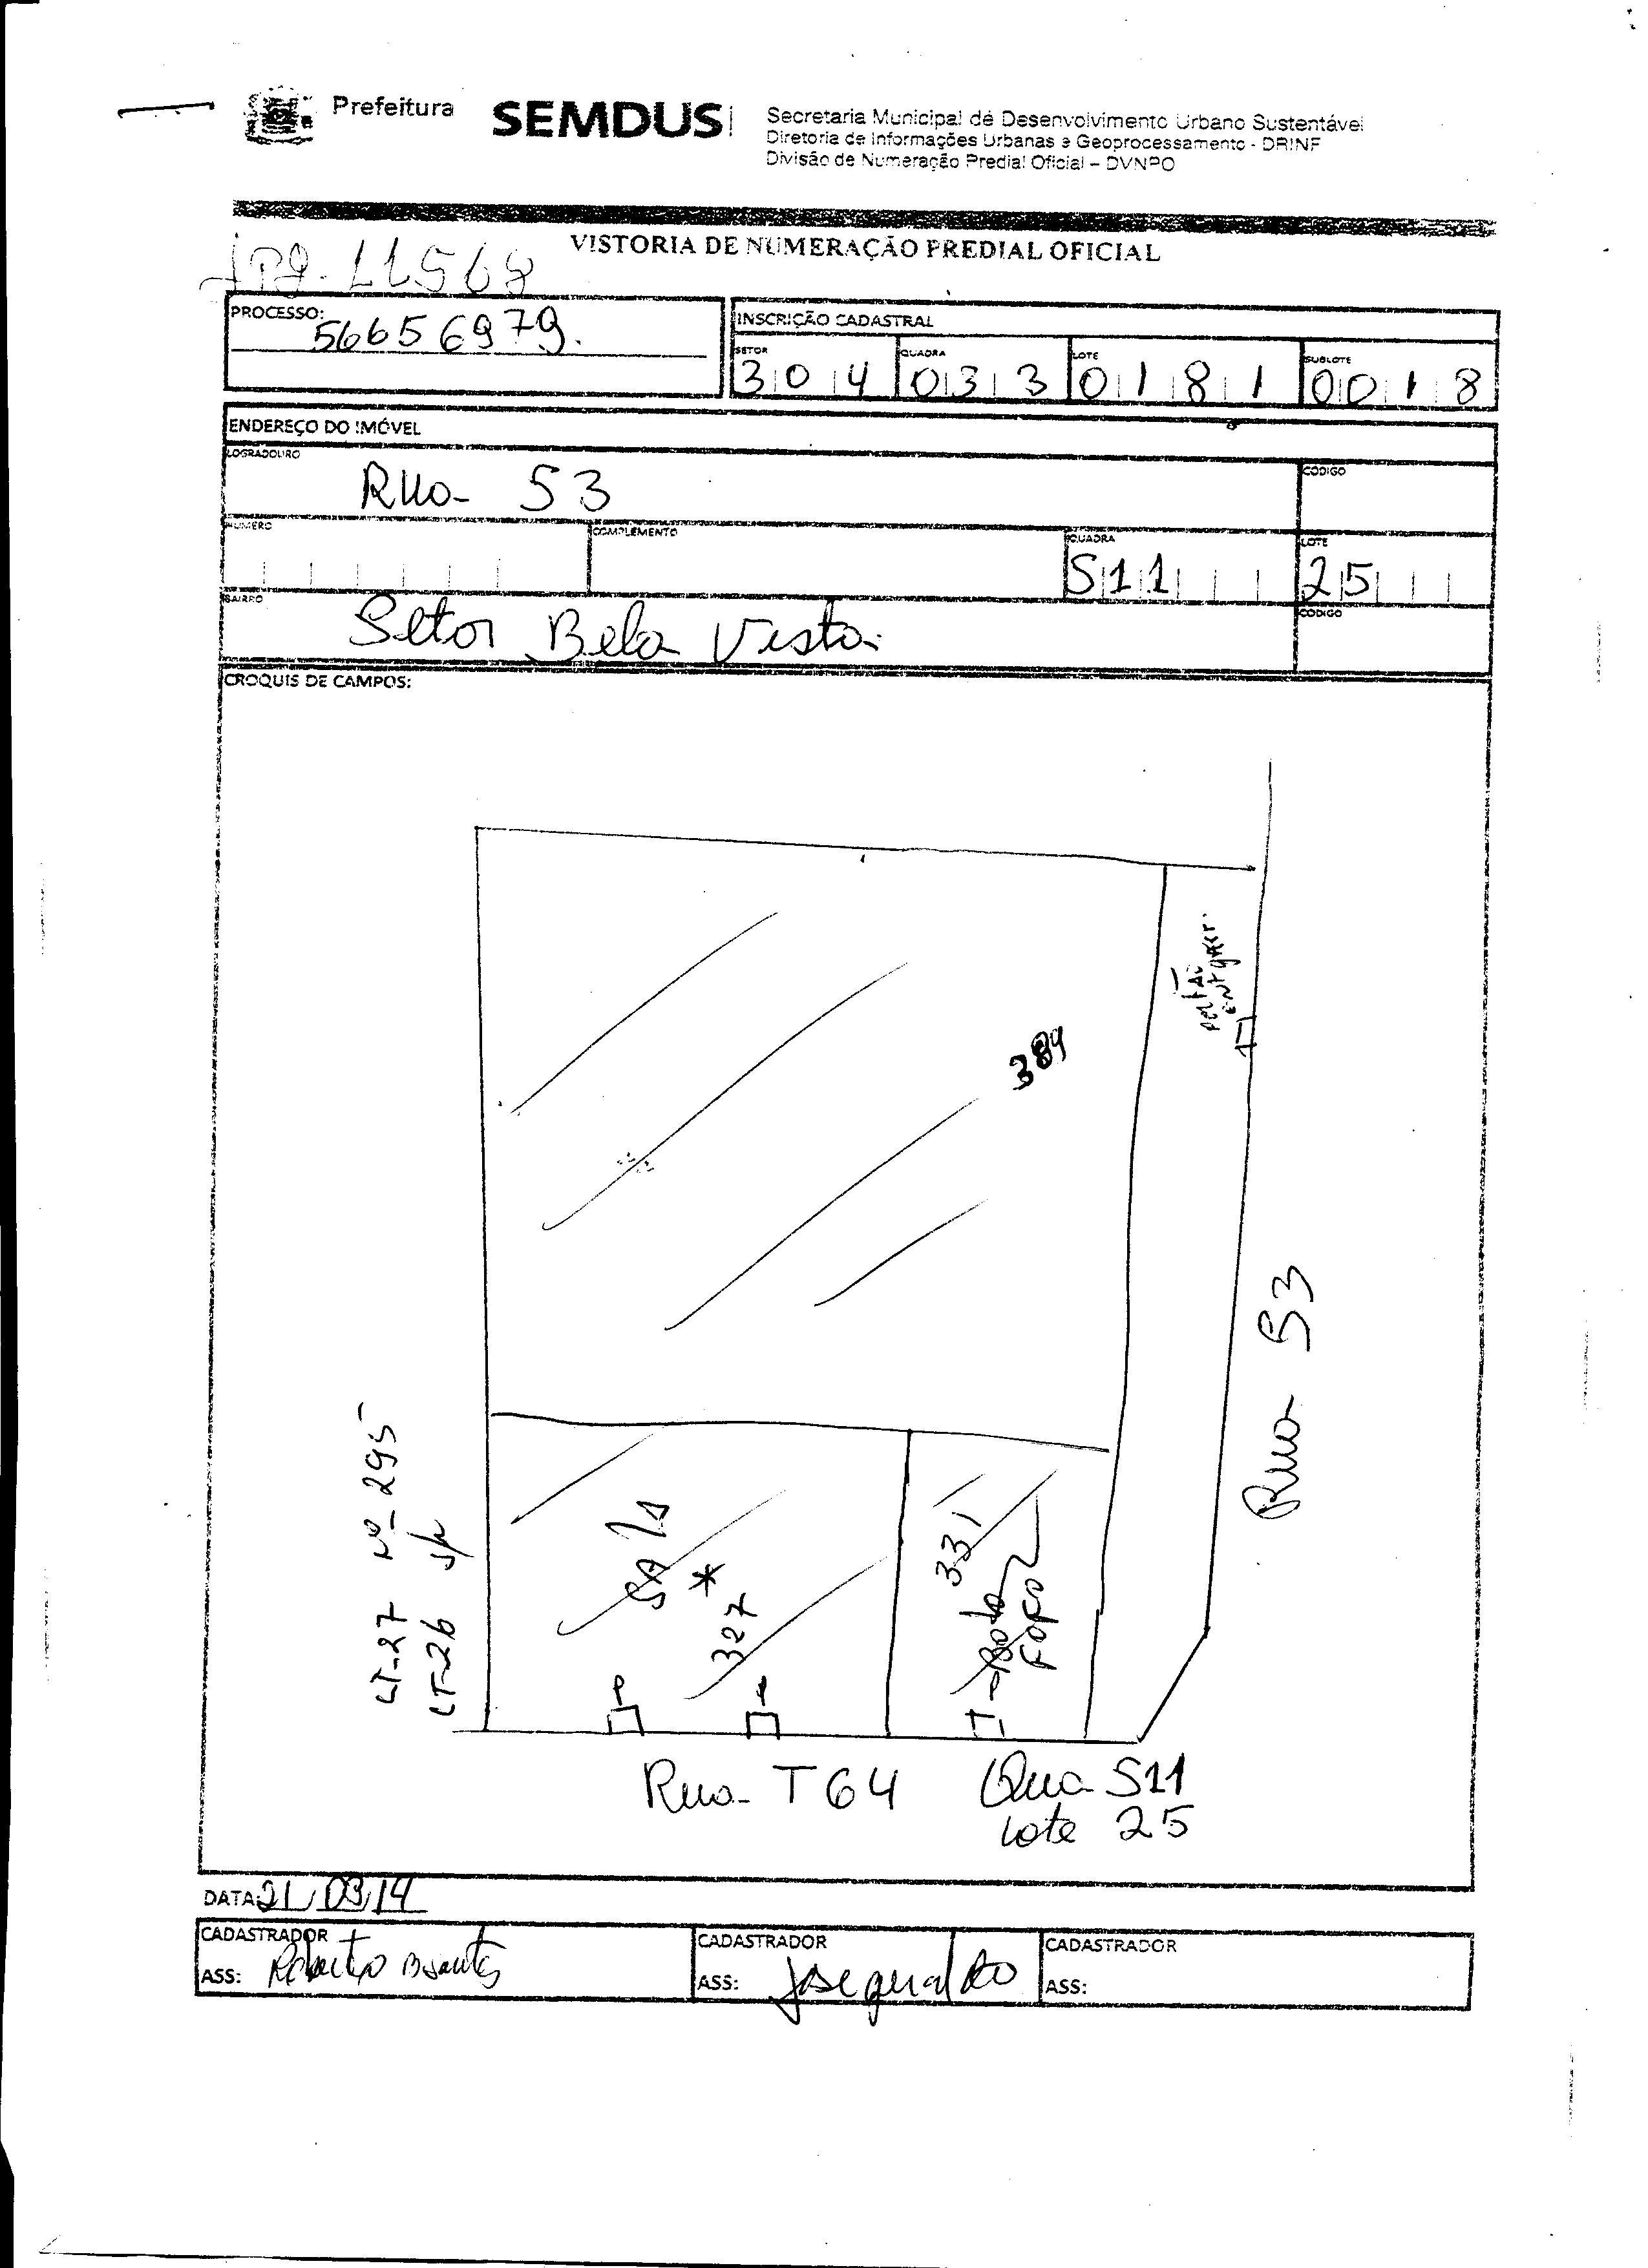 Prefeitura SEMDUS
Secretaria Municipal de Desenvolvimento Urbano Sustentável
Diretoria de Informações Urbanas e Geoprocessamento - DRINF
Divisão de Numeração Predial Oficial – DVNPO
VISTORIA DE NUMERAÇÃO PREDIAL OFICIAL
11568
PROCESSO: 56656979.
INSCRIÇÃO CADASTRAL
SETOR 304 QUADRA 033 LOTE 0181 SUBLOTE 0018
ENDEREÇO DO IMÓVEL
LOGRADOURO Rua S3 CÓDIGO
NÚMERO COMPLEMENTO QUADRA S11 LOTE 25
BAIRRO Setor Bela Vista CÓDIGO
CROQUIS DE CAMPOS:
384
Rua S3
LT-27 Nº 295
LT-26 s/n
SALA
*
327
331
Bota
Fora
Rua T64
Qua S11
Lote 25
DATA 21/03/14
CADASTRADOR
ASS: Roberto
CADASTRADOR
ASS: Jose geraldo
CADASTRADOR
ASS: